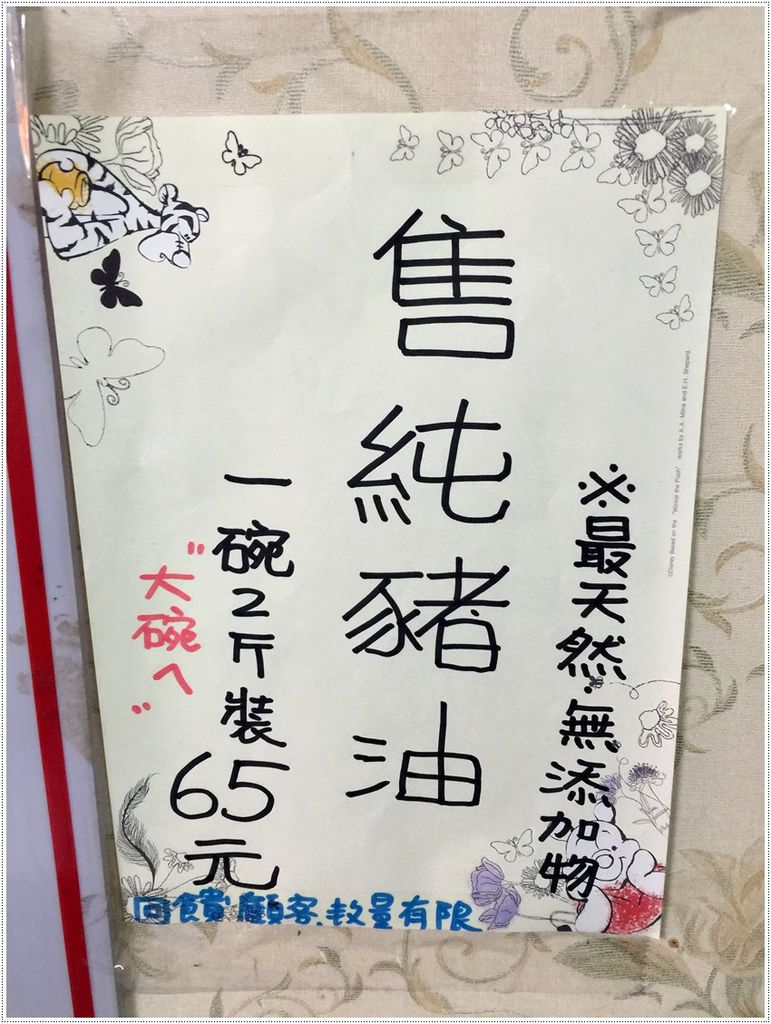 ※最天然.無添加物
售純豬油
一碗2斤裝65元
"大碗ㄟ"
回饋顧客.数量有限
©Disney Based on the "Winnie the Pooh" works by A.A. Milne and E.H. Shepard